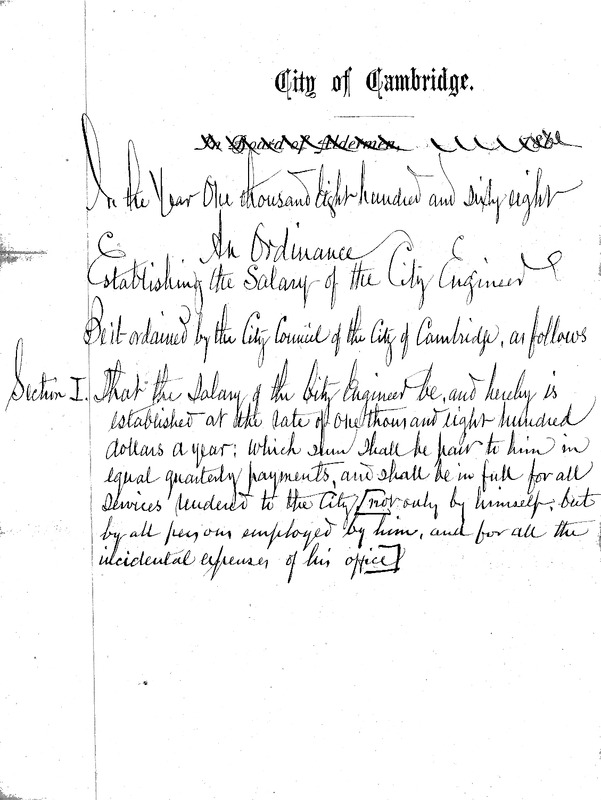 City of Cambridge.
In Board of Aldermen, 186
In the Year One thousand Eight hundred and sixty eight
An Ordinance
Establishing the Salary of the City Engineer
Be it ordained by the City Council of the City of Cambridge, as follows
Section I. That the Salary of the City Engineer be, and hereby is
established at the rate of one thousand eight hundred
dollars a year; which sum shall be paid to him in
equal quarterly payments, and shall be in full for all
services rendered to the City [not only by himself, but
by all persons employed by him, and for all the
incidental expenses of his office]